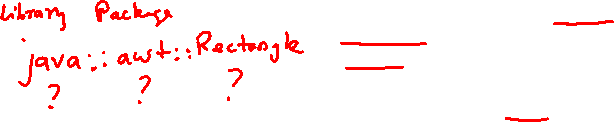 Library Package
java::awt::Rectangle
? ? ?